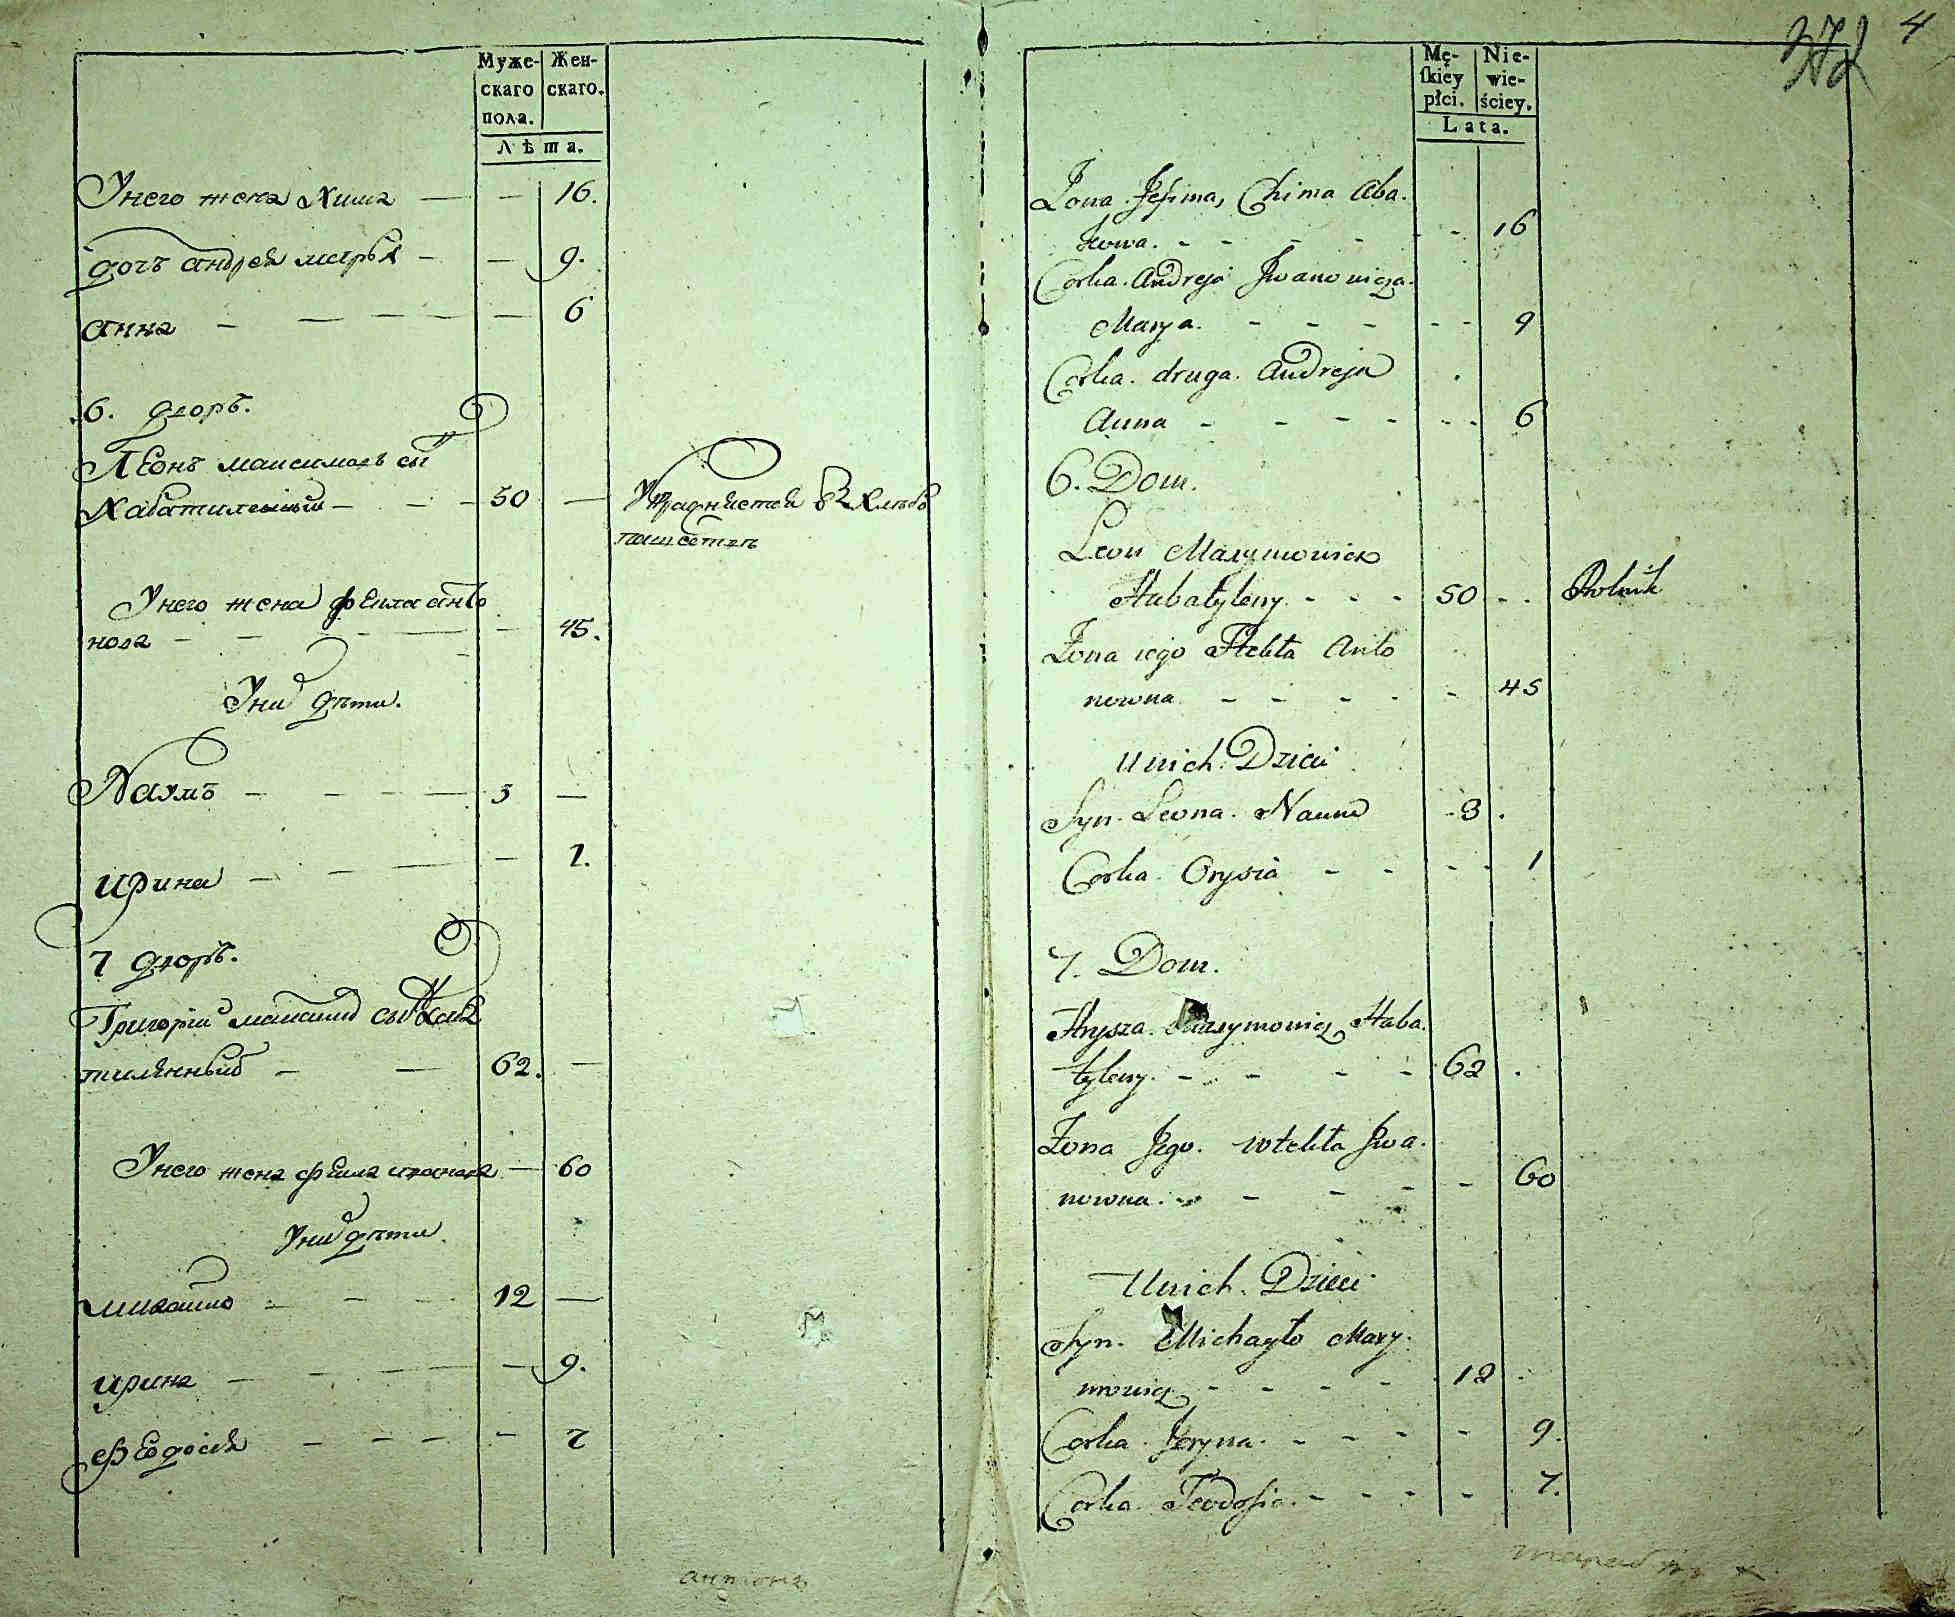 Муже-
скаго
пола.
Жен-
скаго.
Лѣта.
Унего жена Хима — — 16.
дочъ андрея марья — — 9.
анна — — — — — — 6
6. дворъ.
Леонъ максимовъ сы
Хабатиленный — — — 50 —
Упражняется въ хлебо
пашестве
Унего жена фекла анто
нова — — — — — 45.
Уни дѣти.
Наумъ — — — — 3 —
ирина — — — — 1.
7 дворъ.
Григорій
тиленный — — 62. —
Унего жена фекла иванова — 60
Уни дѣти
михайло — — — 12 —
ирина — — — — 9.
Федосия — — — — 7
антонъ
4
Mę-
skiey
płci.
Nie-
wie-
ściey.
Lata.
Żona Jefima, Chima Aba.
- - - - - - 16
Corka Andreja Iwanowicza.
Marya. - - - - - 9
Corka druga Andreja
Anna - - - - - - 6
6. Dom.
Leon Maxymowicz
Habatyleny - - - 50 - - Rolnik
Żona iego Thekla Anto
nowna - - - - - 45
Unich Dzieci
Syn Leona Naum - 3 .
Corka Orysia - - - - 1
7. Dom.
Hrysza Maxymowicz Haba.
tyleny. - - - - 62 .
Żona Jego. Iwa.
nowna. - - - - - 60
Unich Dzieci
Syn. Michayło Maxy.
mowicz - - - - 12 -
Corka Jeryna. - - - - - 9.
Corka Teodosia. - - - - - 7.